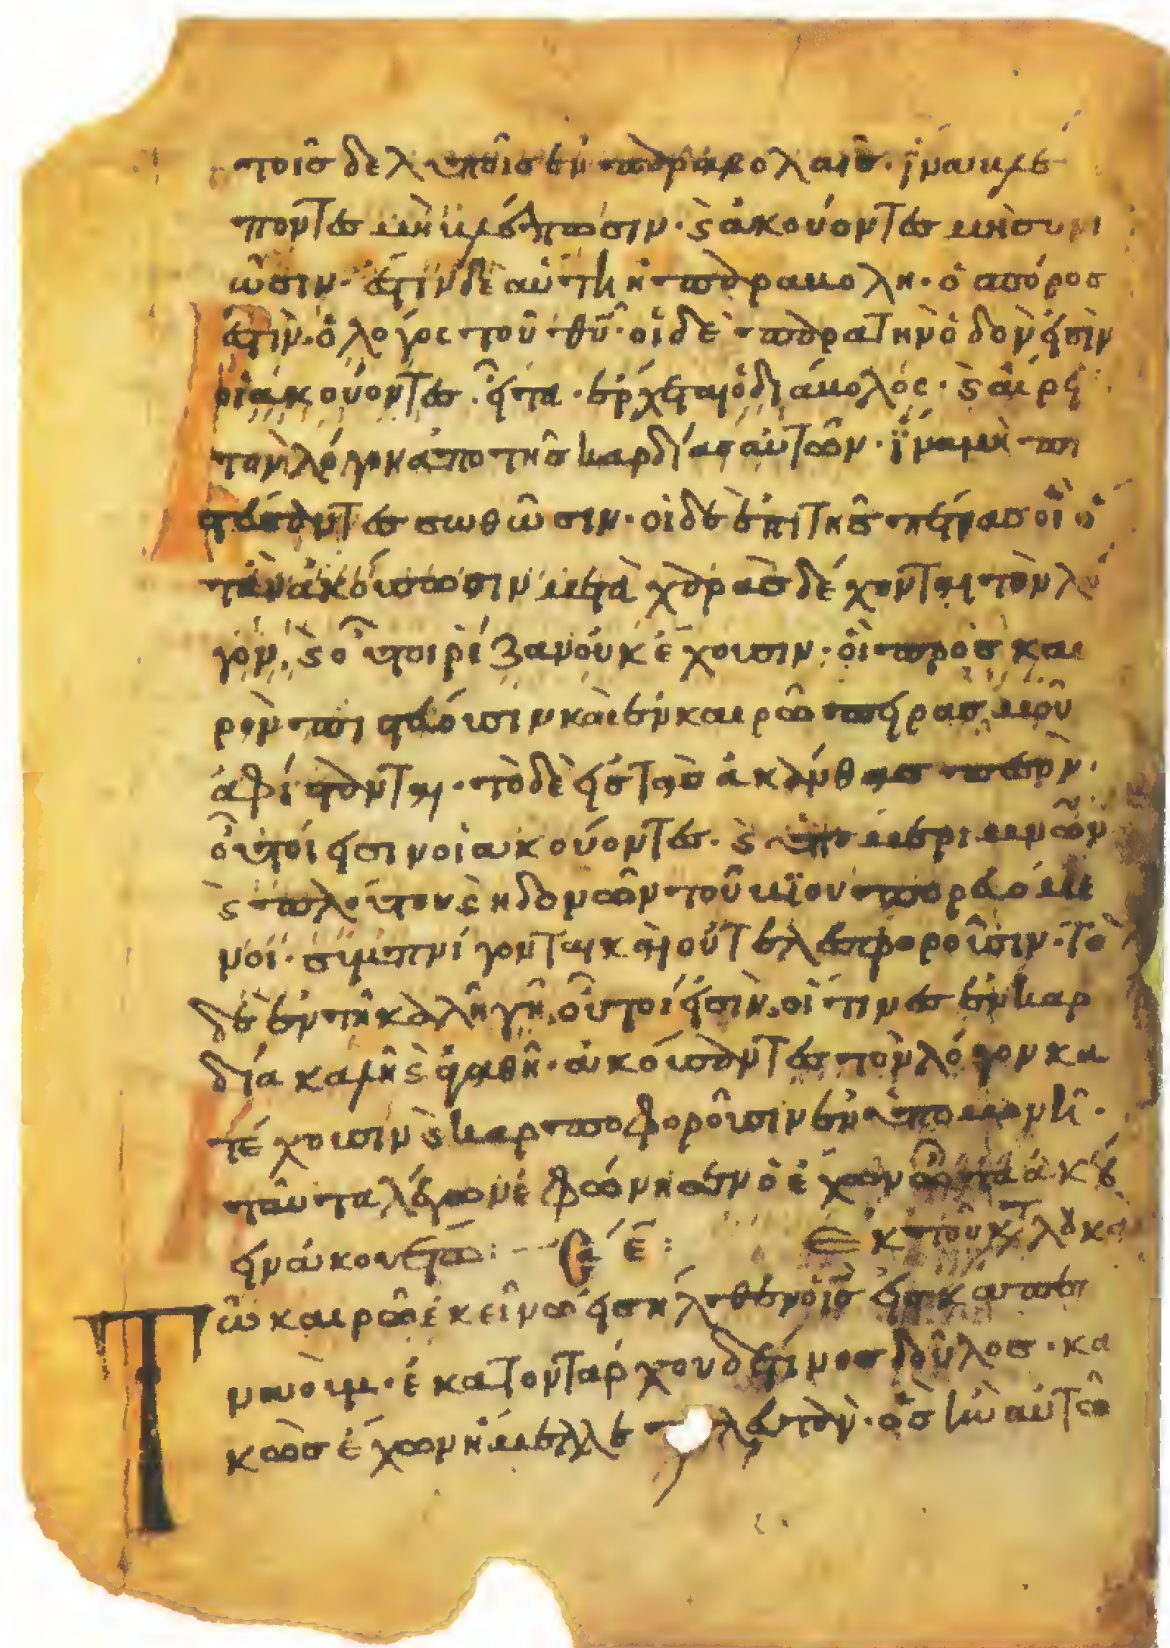 τοῖσ δε λυποῖσ ἐν παραβολαῖσ· ἵνα βλέ
ποντεσ μὴ βλέπωσιν· ϛ ἀκούοντεσ μὴ συνι
ῶσιν· ἔστιν δὲ αὕτη ἡ παραβολή· ὁ σπόροσ
ἐστὶν ὁ λόγος τοῦ θυ̅· οἱ δὲ παρα τὴν ὁδὸν εἰσὶν
οἱ ἀκούοντεσ· εἶτα ἔρχεται ὁ διάβολος· ϛ αἴρει
τὸν λόγον ἀπο τῆσ καρδίασ αὐτῶν· ἵνα μὴ πι
στεύσαντεσ σωθῶσιν· οἱ δὲ ἐπι τῆσ πέτρασ οἳ ὅ
ταν ἀκούσωσιν μετὰ χαρᾶσ δέχονται τὸν λό
γον, ϛ οὗτοι ρίζαν οὐκ ἔχουσιν· οἳ πρὸσ και
ρὸν πιστεύουσιν καὶ ἐν καιρῶ πειρασμοῦ
ἀφίστανται· τὸ δὲ εἰσ τὰσ ἀκάνθασ πεσὸν·
οὗτοί εἰσιν οἱ ἀκούοντεσ· ϛ ὑπο μεριμνῶν
ϛ πλούτου ϛ ἡδονῶν τοῦ βίου πορευόμε
νοι· συμπνίγονται καὶ οὐ τελεσφοροῦσιν· τὸ
δὲ ἐν τῆ καλῆ γῆ, οὗτοί εἰσὶν, οἵτινεσ ἐν καρ
δία καλῆ ϛ ἀγαθῆ· ἀκούσαντεσ τὸν λόγον κα
τέχουσιν ϛ καρποφοροῦσιν ἐν ὑπομονῆ·
ταῦτα λέγων ἐφώνει ὁ ἔχων ὦτα ἀκού
ειν ἀκουέτω: ε̅: Εκ τοῦ κτ λουκα
Τῶ καιρῶ ἐκείνω εἰσῆλθεν ὁ ισ̅ εἰσ καπερ
ναούμ· ἑκατοντάρχου δέ τινοσ δοῦλοσ· κα
κῶσ ἔχων ἤμελλε τελευτᾶν· ὃσ ἦν αὐτῶ